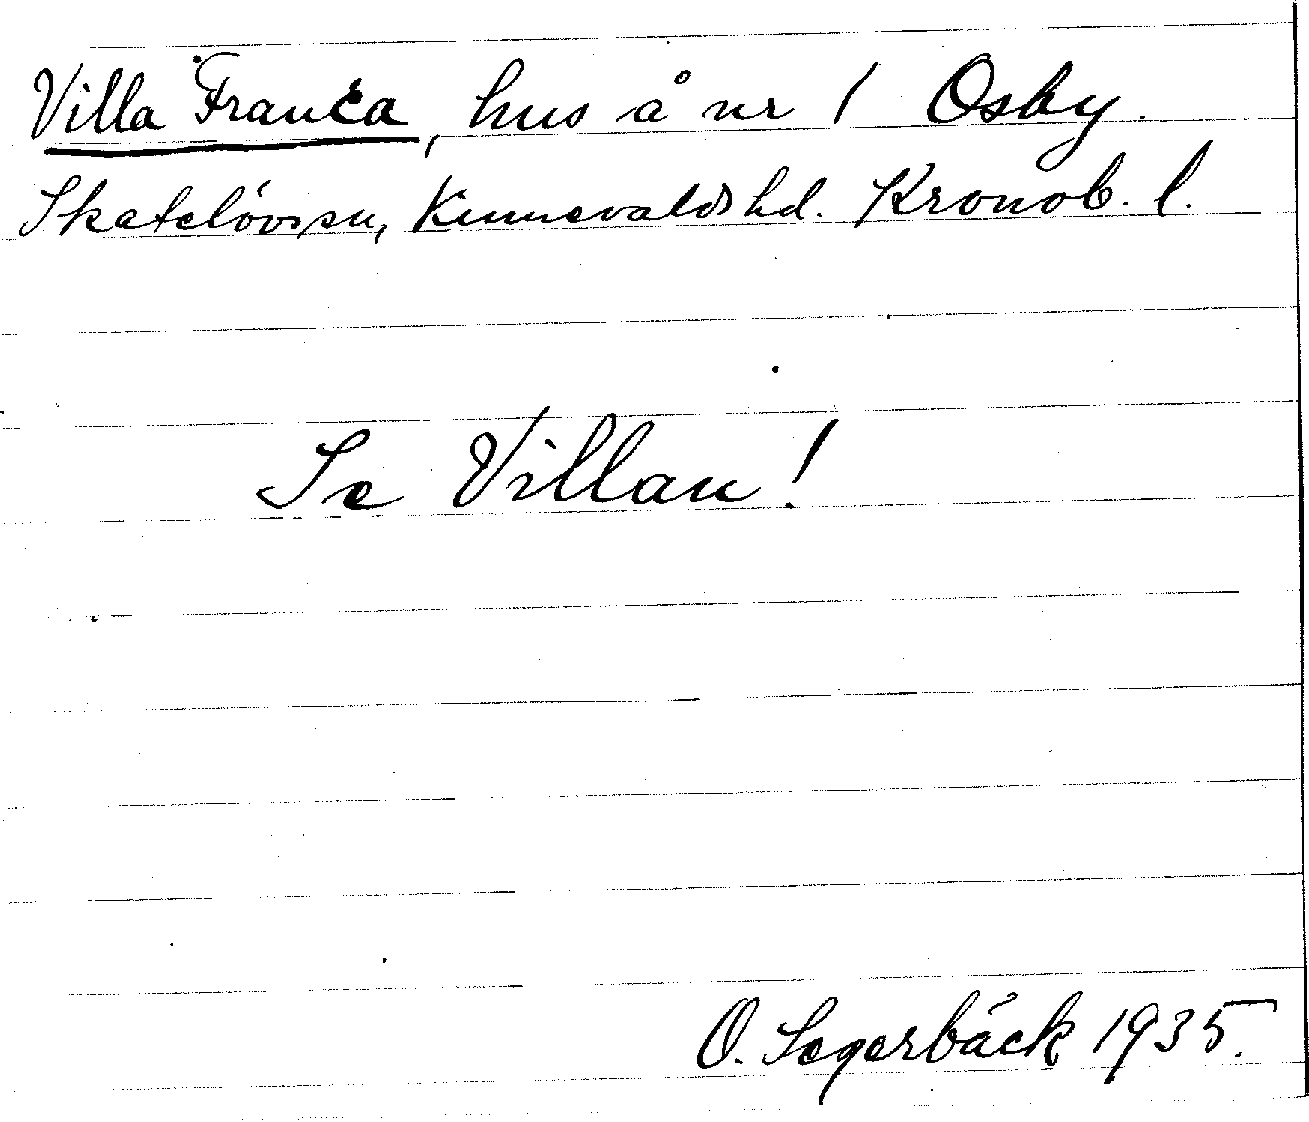 Villa Franca, hus å nr 1 Osby.
Skatelövs sn, Kinnevalds hd. Kronob. l.
Se Villan!
O. Segerbäck 1935.